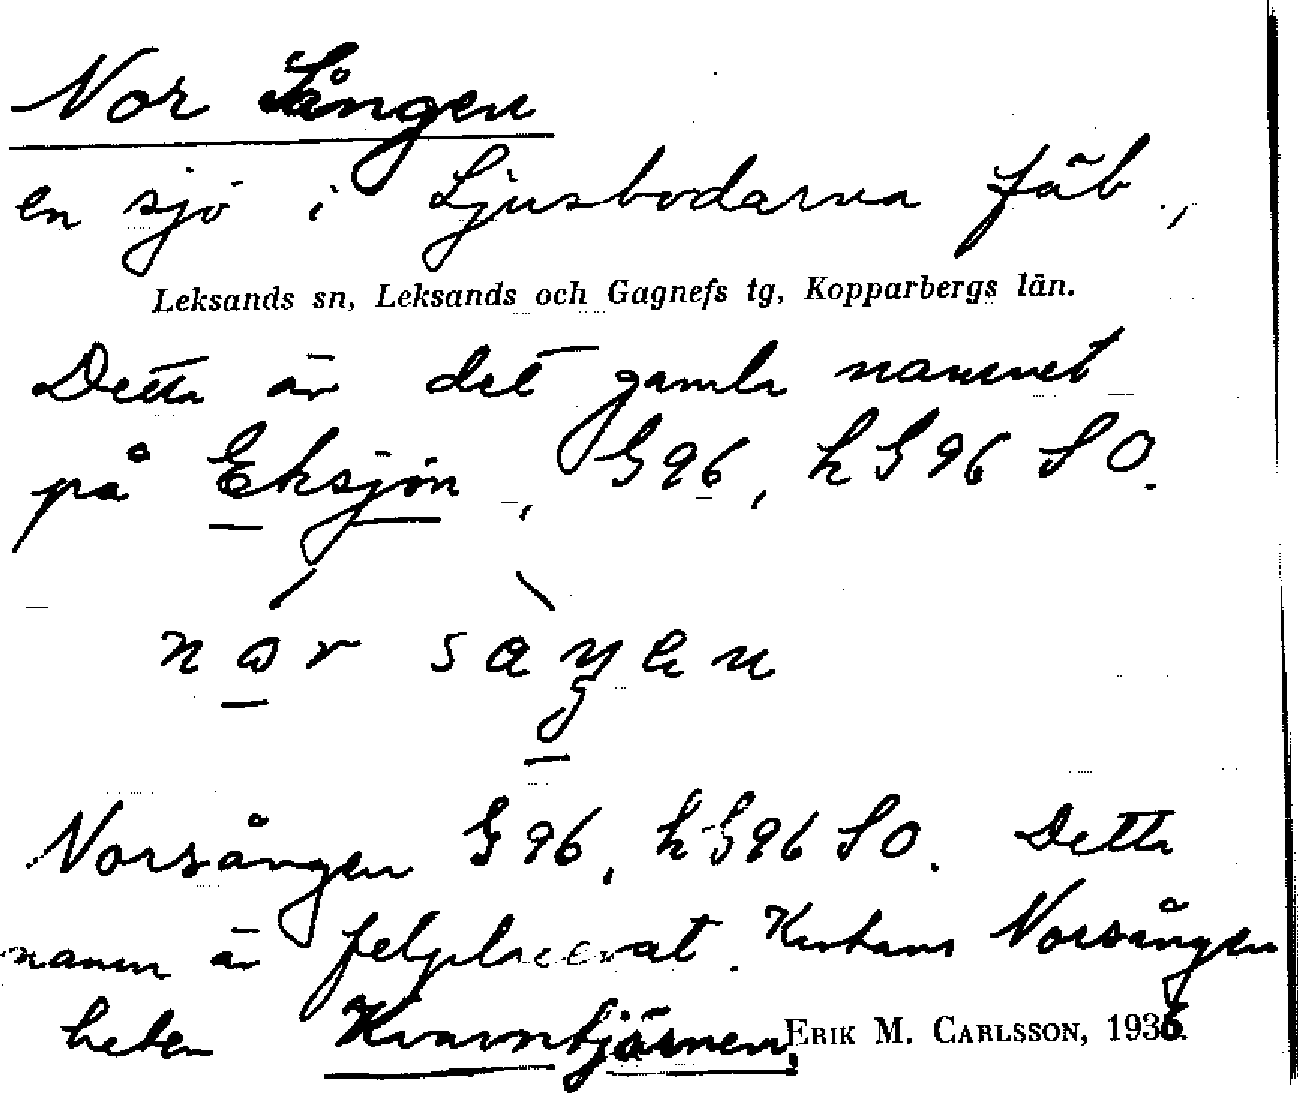 Nor Sången
en sjö i Ljusbodarna fäb.,
Leksands sn, Leksands och Gagnefs tg, Kopparbergs län.
Detta är det gamla namnet
på Eksjön, G96, hG96 SO.
Norsången G96, hG96 SO. Detta
namn är felplacerat. Kartans Norsången
heter Kvarntjärnen,
ERIK M. CARLSSON, 1936.